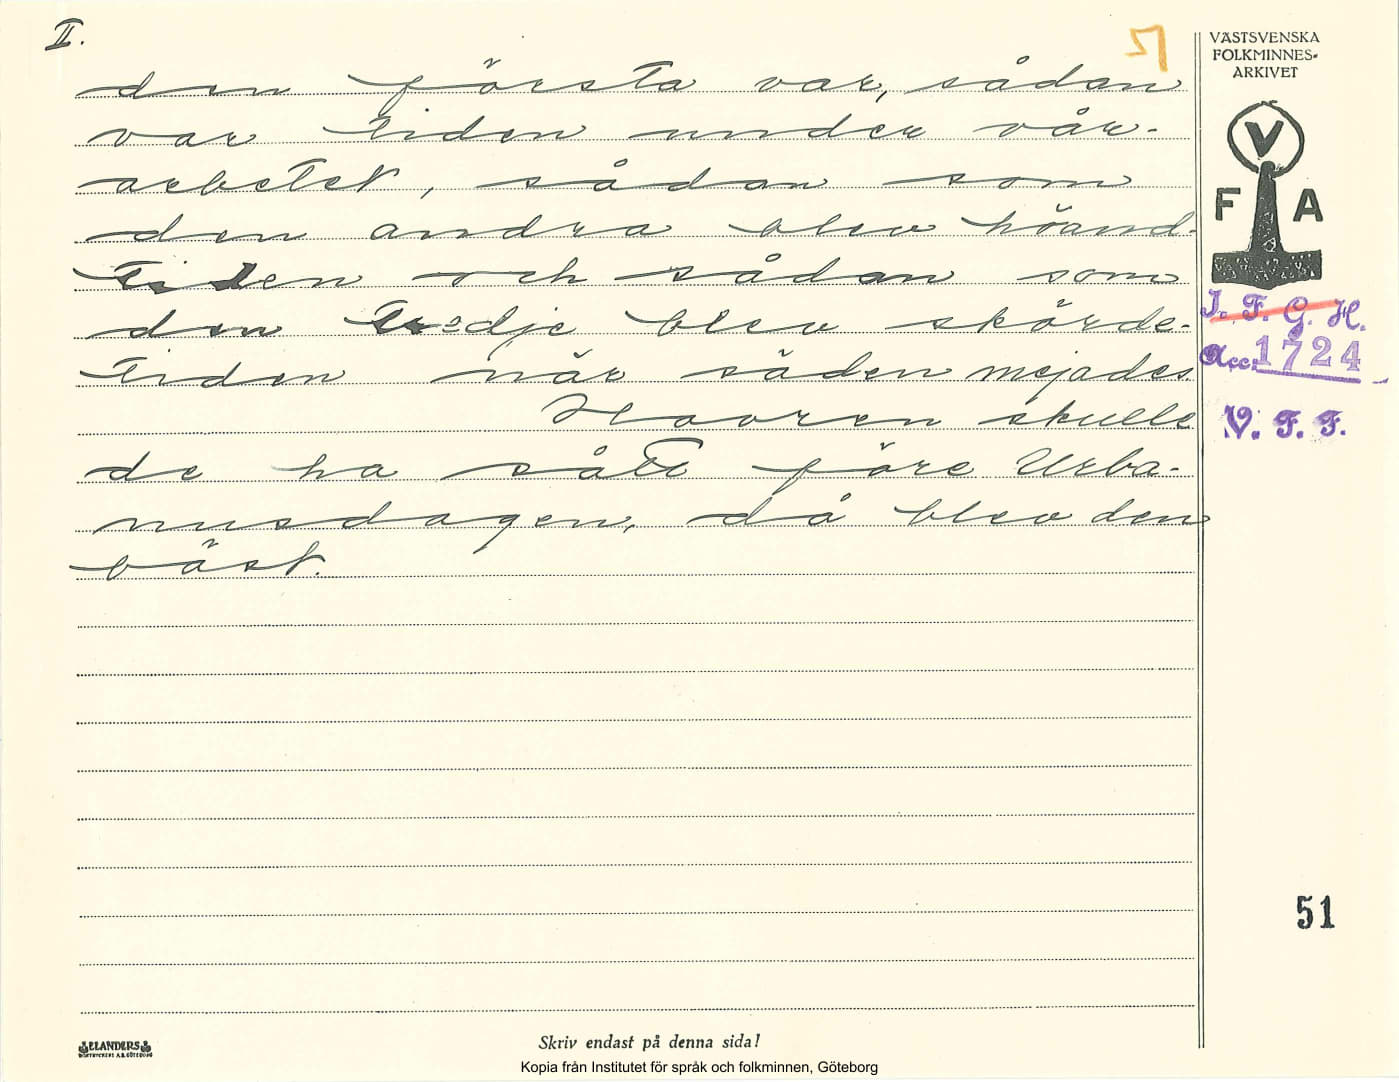 II.
51
VÄSTSVENSKA
FOLKMINNES-
ARKIVET
V
F A
I. F. G. H.
Acc. 1724
V. F. F.
den första var, sådan
var tiden under vår-
arbetet, sådan som
den andra blev höand-
tiden och sådan som
den tredje blev skörde-
tiden när säden mejades.
Havren skulle
de ha sått före Urba-
nusdagen, då blev den
bäst.
51
ELANDERS
BOKTRYCKERI A.B. GÖTEBORG
Skriv endast på denna sida!
Kopia från Institutet för språk och folkminnen, Göteborg